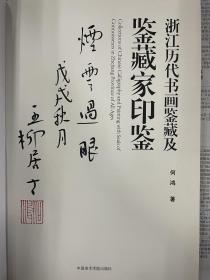 浙江历代书画鉴藏及
鉴藏家印鉴
Collections of Chinese Calligraphy and Painting with Seals of
Connoisseurs in Zhejiang Province of All Ages
何鸿 著
煙雲過眼
戊戌秋月
五柳居士
中国美术学院出版社